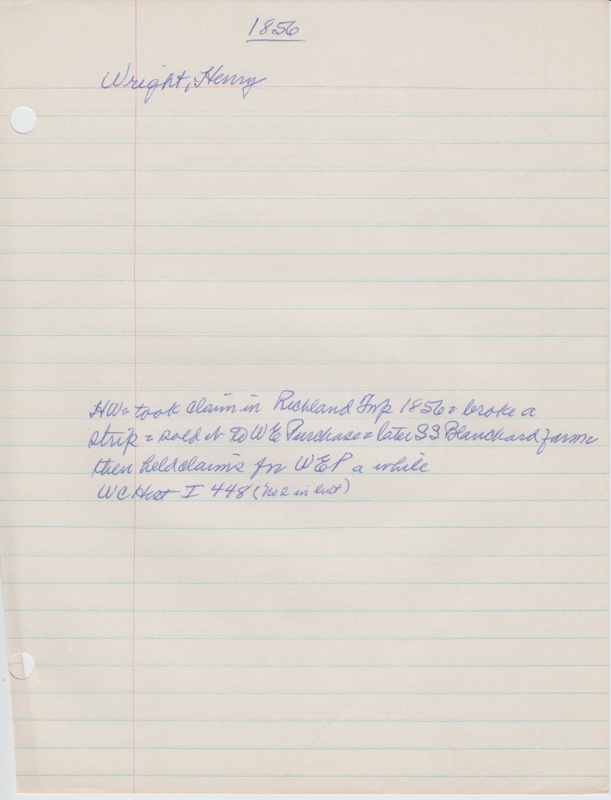 1856
Wright, Henry
HW = took claim in Richland Twp 1856 = broke a
strip = sold it to W E Purchase = later S S Blanchard farm
then held claims for W E P a while
W C Hist I 448 (No 2 in list)